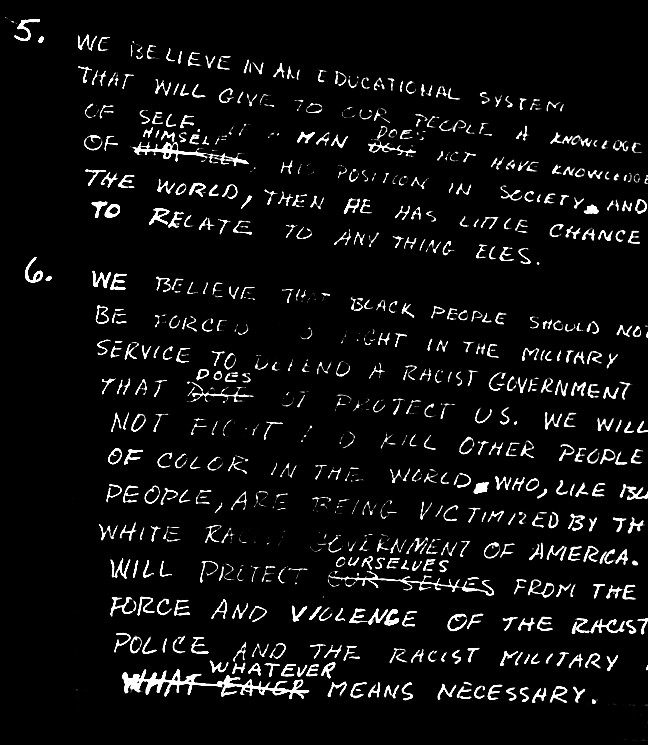 5. WE BELIEVE IN AN EDUCATIONAL SYSTEM
THAT WILL GIVE TO OUR PEOPLE A KNOWLEDGE
OF SELF. IF A MAN DOES DOSE NOT HAVE KNOWLEDGE
OF HIMSELF HIM SELF, HIS POSITION IN SOCIETY AND
THE WORLD, THEN HE HAS LITTLE CHANCE
TO RELATE TO ANY THING ELES.
6. WE BELIEVE THAT BLACK PEOPLE SHOULD NOT
BE FORCED TO FIGHT IN THE MILITARY
SERVICE TO DEFEND A RACIST GOVERNMENT
THAT DOES DOSE NOT PROTECT US. WE WILL
NOT FIGHT AND KILL OTHER PEOPLE
OF COLOR IN THE WORLD WHO, LIKE BL
PEOPLE, ARE BEING VICTIMIZED BY TH
WHITE RACIST GOVERNMENT OF AMERICA.
WILL PROTECT OURSELVES OUR SELVES FROM THE
FORCE AND VIOLENCE OF THE RACIST
POLICE AND THE RACIST MILITARY
WHATEVER WHAT EAVER MEANS NECESSARY.